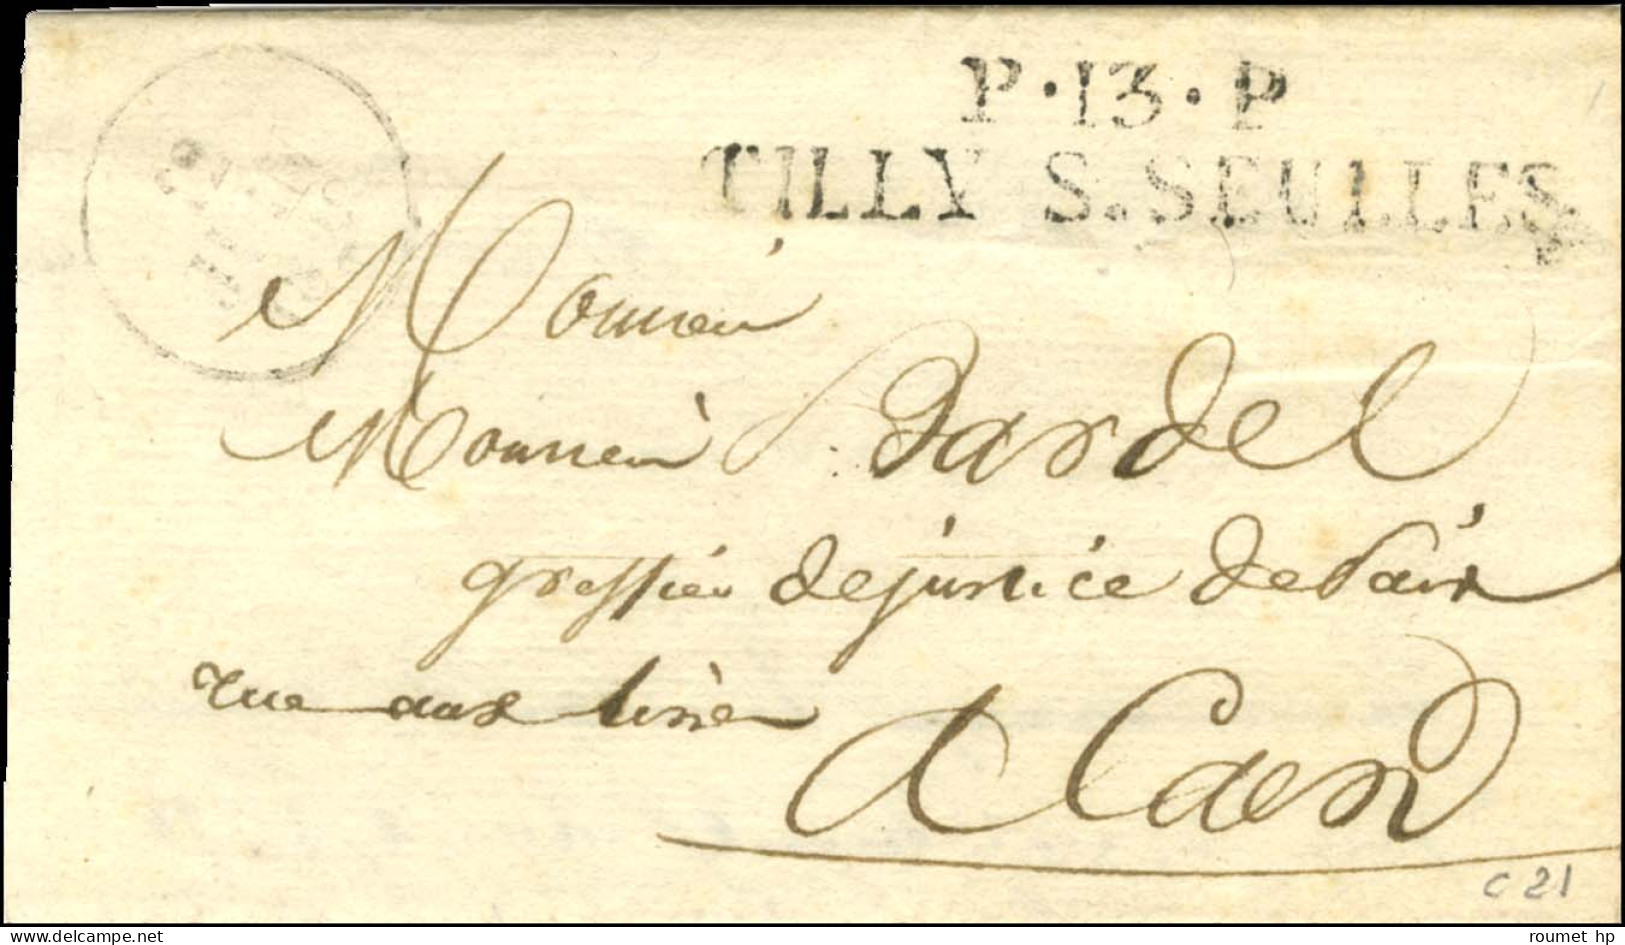 P·13·P
TILLY S. SEULLES
Monsieur
Monsieur Dardel
greffier de justice de Paix
rue aux
A Caen
c 21
www.delcampe.net
roumet hp